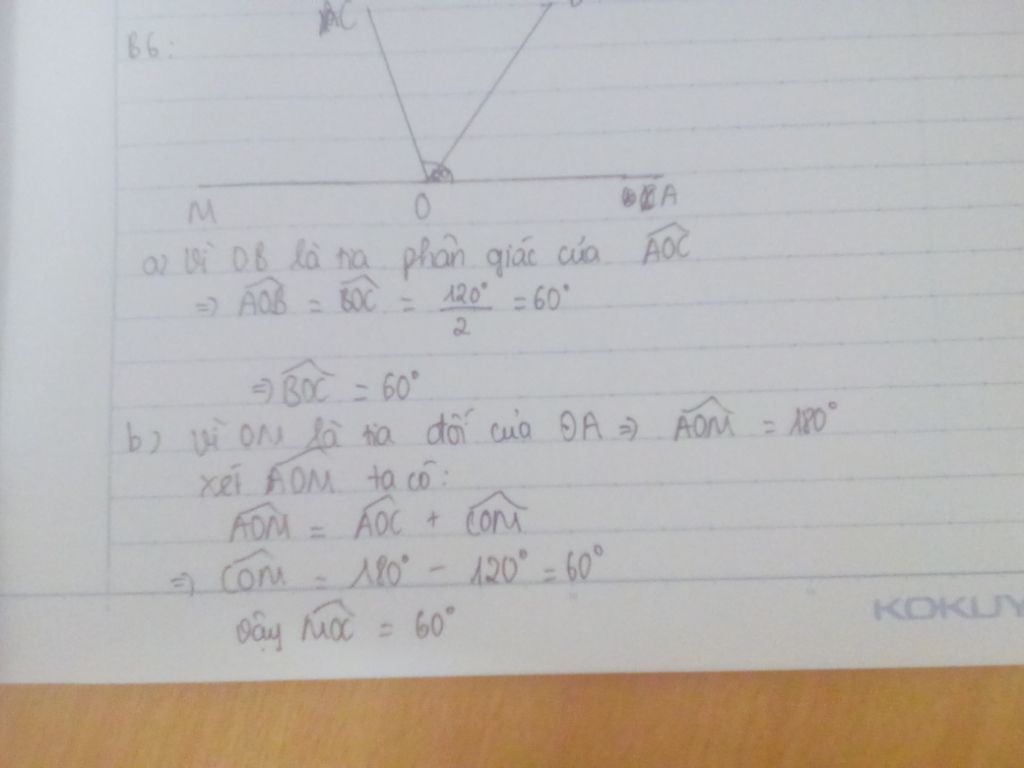 C
B6:
M O A
a) Vì OB là tia phân giác của AOC
⇒ AOB = BOC = 120°/2 = 60°
⇒ BOC = 60°
b) Vì OM là tia đối của OA ⇒ AOM = 180°
xét AOM ta có:
AOM = AOC + COM
⇒ COM = 180° - 120° = 60°
Vậy MOC = 60°
KOKUY